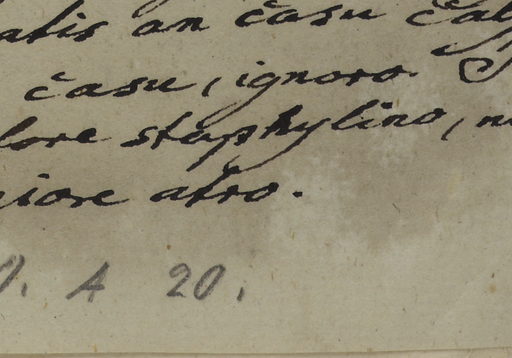 atis an casu
casu, ignoro.
lore staphylino,
iore atro.
A 20.